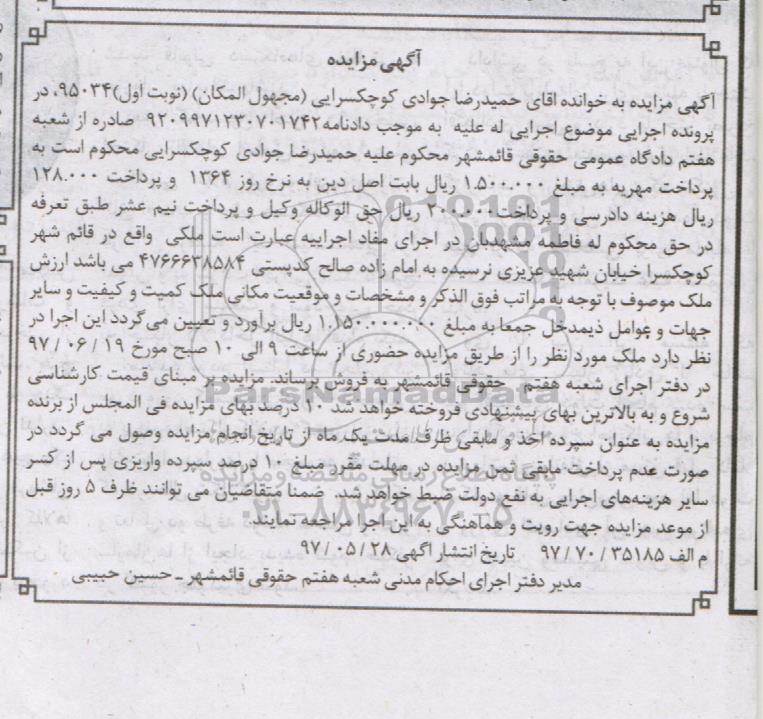 آگهی مزایده
آگهی مزایده به خوانده اقای حمیدرضا جوادی کوچکسرایی (مجهول المکان) (نوبت اول) ۹۵۰۳۴، در
پرونده اجرایی موضوع اجرایی له علیه به موجب دادنامه ۹۲۰۹۹۷۱۲۳۰۷۰۱۷۴۲ صادره از شعبه
هفتم دادگاه عمومی حقوقی قائمشهر محکوم علیه حمیدرضا جوادی کوچکسرایی محکوم است به
پرداخت مهریه به مبلغ ۱.۵۰۰.۰۰۰ ریال بابت اصل دین به نرخ روز ۱۳۶۴ و پرداخت ۱۲۸.۰۰۰
ریال هزینه دادرسی و پرداخت ۲۰۰.۰۰۰ ریال حق الوکاله وکیل و پرداخت نیم عشر طبق تعرفه
در حق محکوم له فاطمه مشهدبان در اجرای مفاد اجراییه عبارت است ملکی واقع در قائم شهر
کوچکسرا خیابان شهید عزیزی نرسیده به امام زاده صالح کدپستی ۴۷۶۶۶۳۸۵۸۴ می باشد ارزش
ملک موصوف با توجه به مراتب فوق الذکر و مشخصات و موقعیت مکانی ملک کمیت و کیفیت و سایر
جهات و عوامل ذیمدخل جمعا به مبلغ ۱.۱۵۰.۰۰۰.۰۰۰ ریال برآورد و تعیین می گردد این اجرا در
نظر دارد ملک مورد نظر را از طریق مزایده حضوری از ساعت ۹ الی ۱۰ صبح مورخ ۱۹ / ۰۶ / ۹۷
در دفتر اجرای شعبه هفتم حقوقی قائمشهر به فروش برساند. مزایده بر مبنای قیمت کارشناسی
شروع و به بالاترین بهای پیشنهادی فروخته خواهد شد ۱۰ درصد بهای مزایده فی المجلس از برنده
مزایده به عنوان سپرده اخذ و مابقی ظرف مدت یک ماه از تاریخ انجام مزایده وصول می گردد در
صورت عدم پرداخت مابقی ثمن مزایده در مهلت مقرر مبلغ ۱۰ درصد سپرده واریزی پس از کسر
سایر هزینه‌های اجرایی به نفع دولت ضبط خواهد شد. ضمنا متقاضیان می توانند ظرف ۵ روز قبل
از موعد مزایده جهت رویت و هماهنگی به این اجرا مراجعه نمایند.
م الف ۳۵۱۸۵ / ۷۰ / ۹۷ تاریخ انتشار اگهی ۲۸ / ۰۵ / ۹۷
مدیر دفتر اجرای احکام مدنی شعبه هفتم حقوقی قائمشهر ـ حسین حبیبی
ParsNamadData
پایگاه اطلاع رسانی مناقصه و مزایده
۰۲۱-۸۸۳۴۹۶۷۰-۵